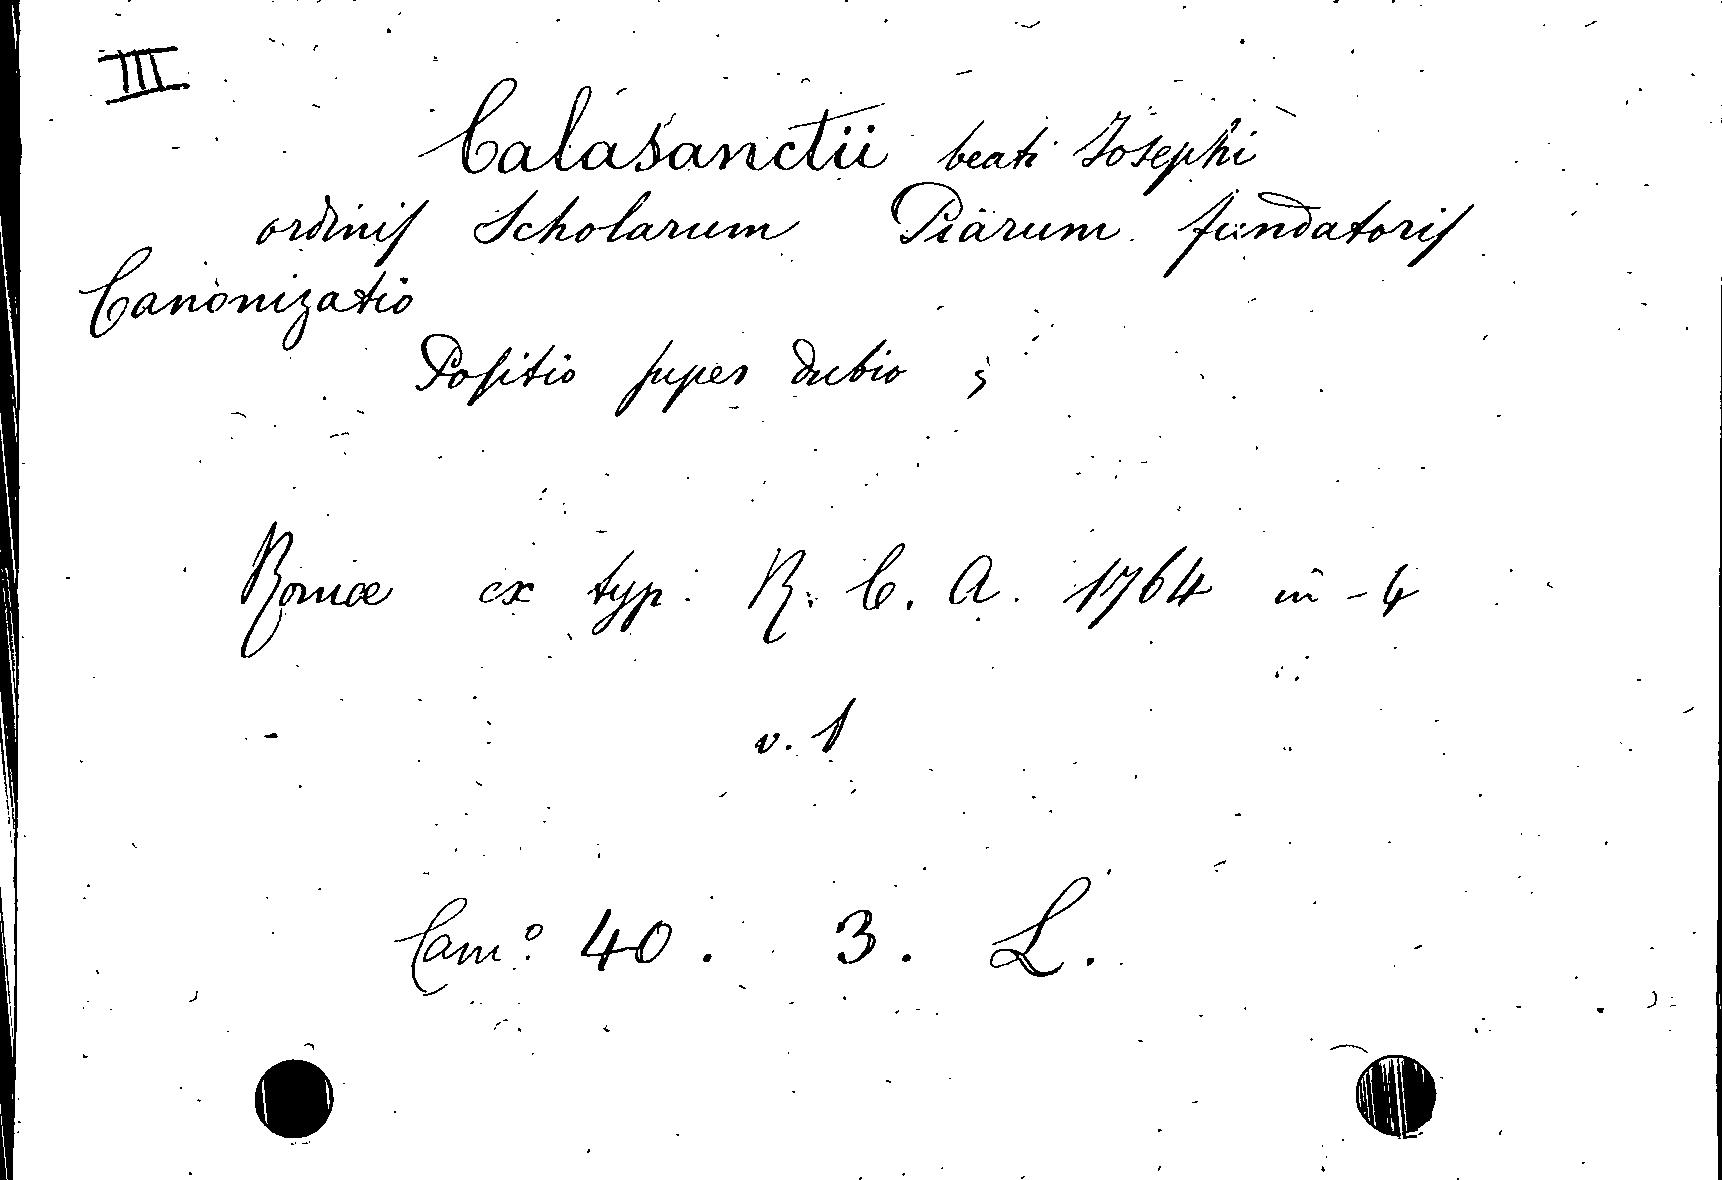 III
Calasanctii beati Josephi
ordinis Scholarum Piarum fundatoris
Canonizatio
Positio super dubio ;
Romæ ex typ. R. C. A. 1764 in-4
v. 1
Cam.º 40. 3. L.